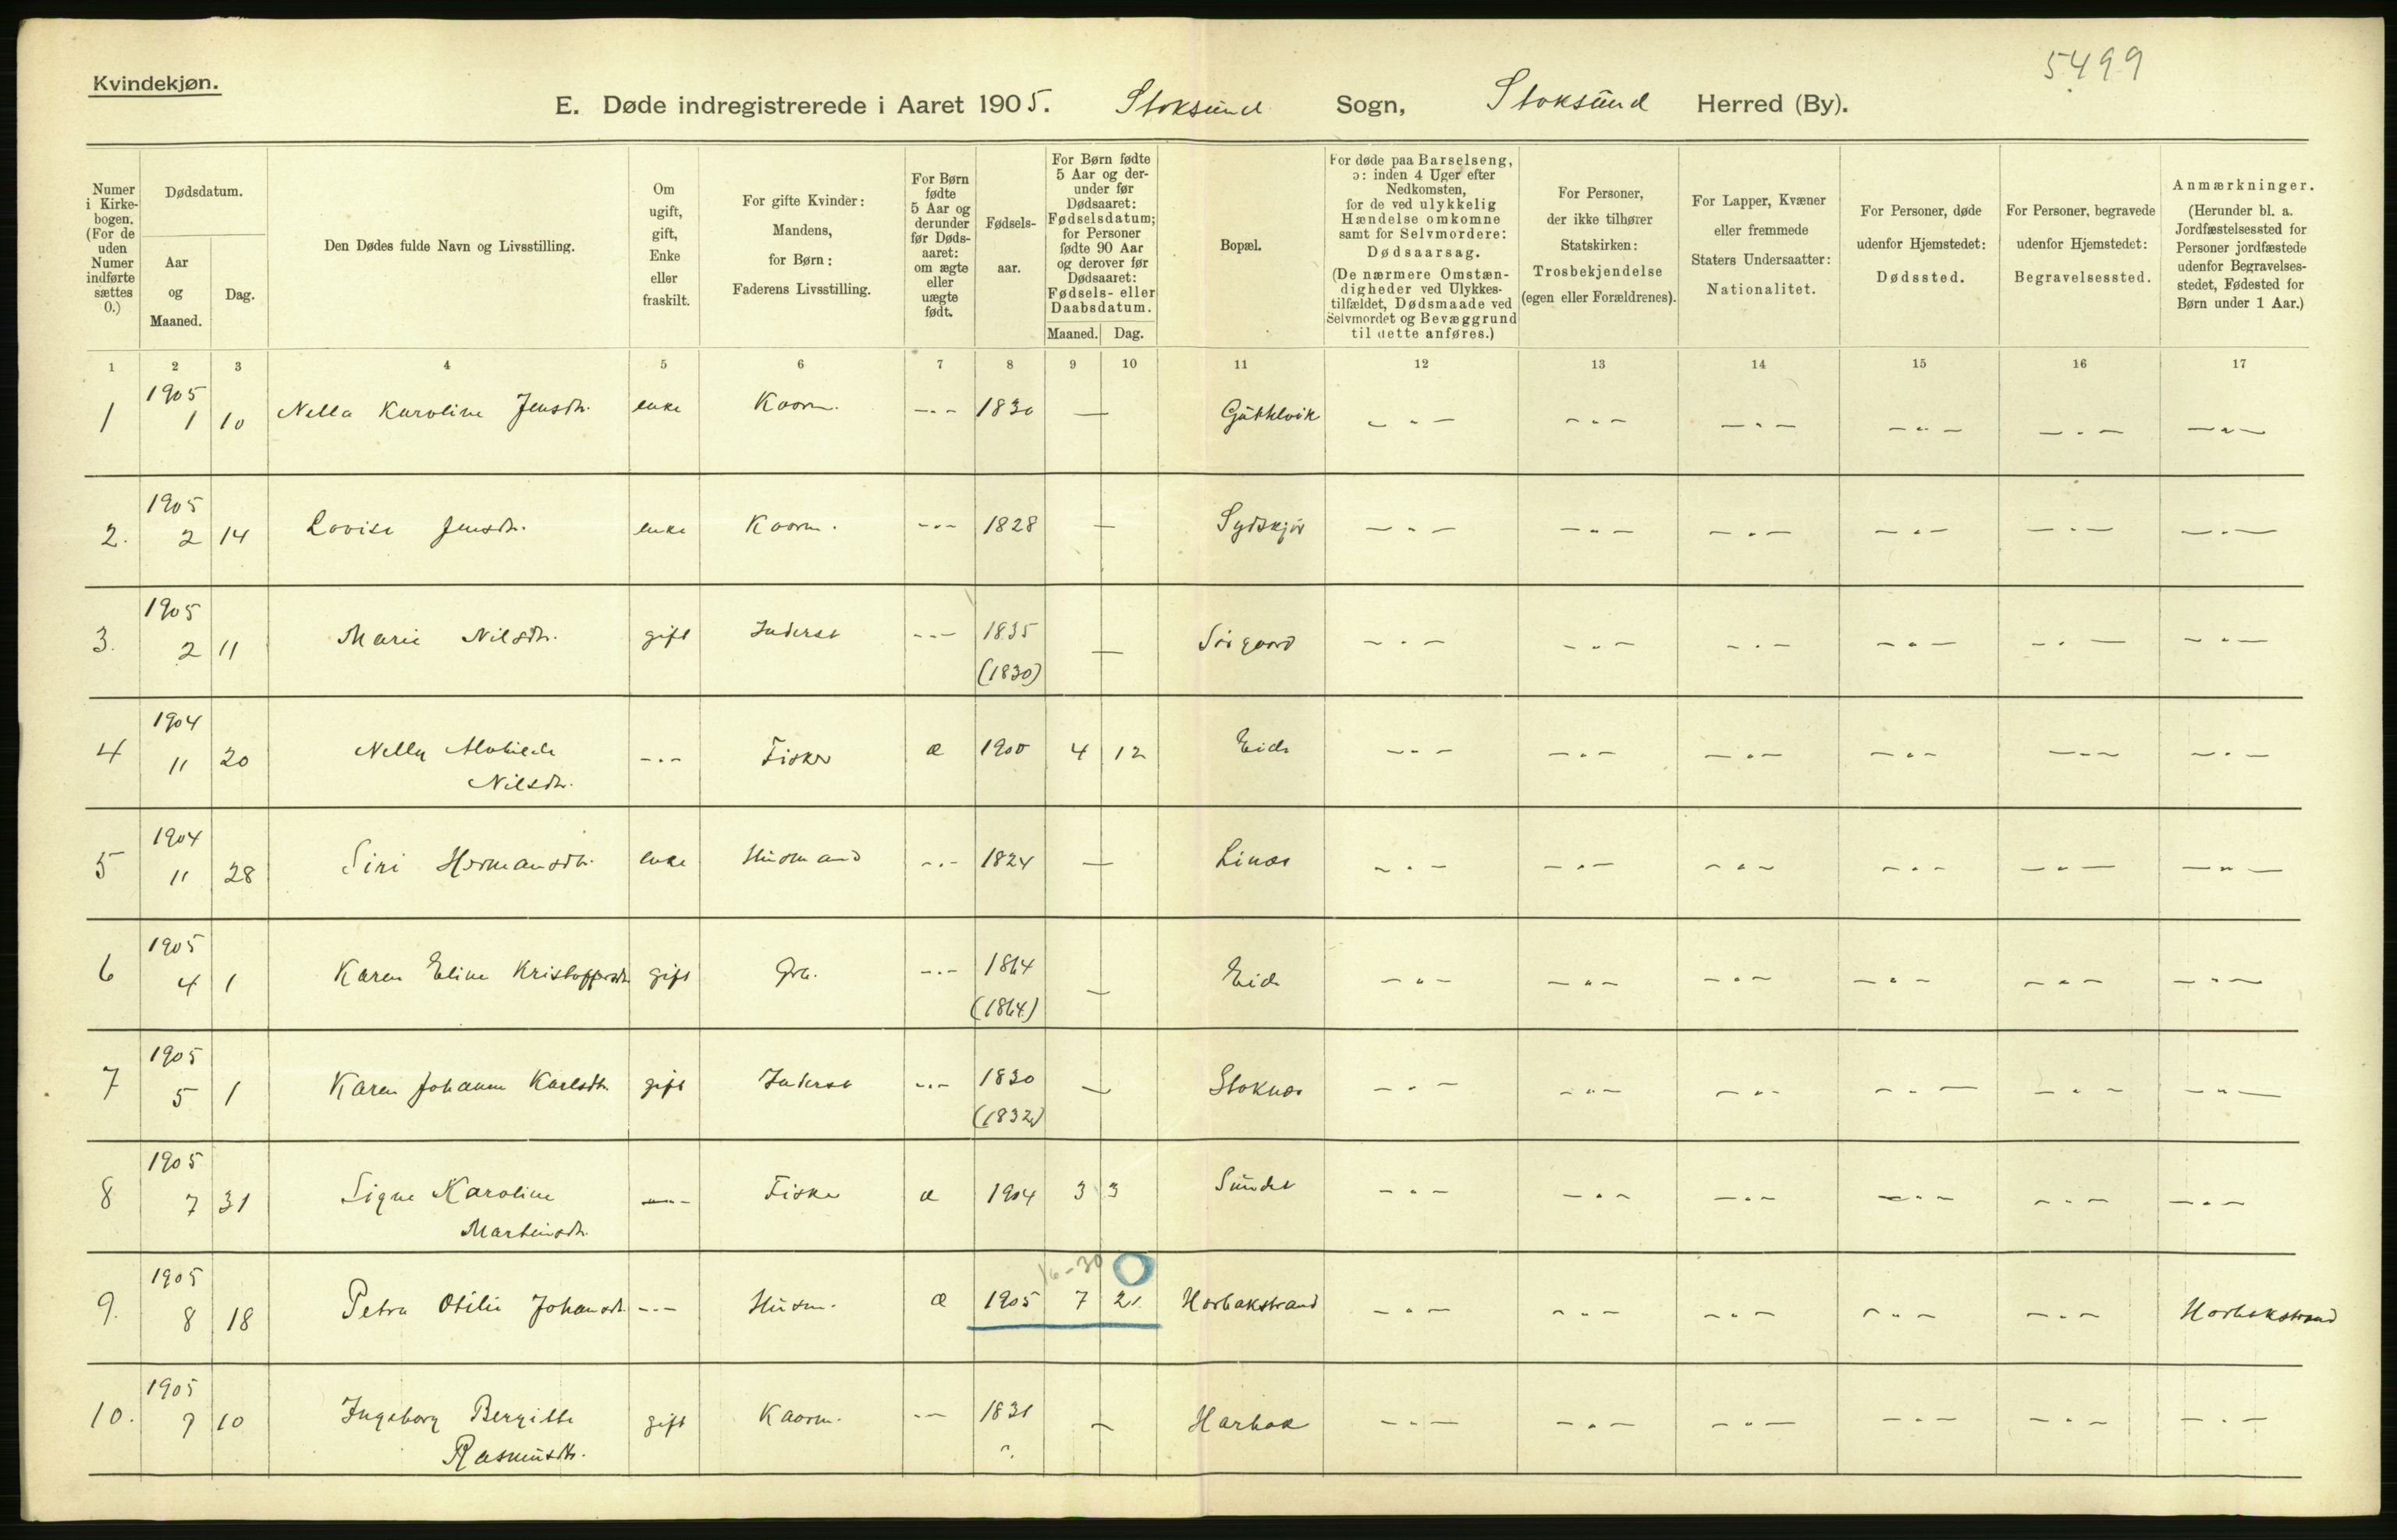 5499
Kvindekjøn.
E. Døde indregistrerede i Aaret 1905. Stoksund Sogn, Stoksund Herred (By).
Numer i Kirke-bogen. (For de uden Numer indførte sættes 0.)
Dødsdatum.
Aar og Maaned.
Dag.
Den Dødes fulde Navn og Livsstilling.
Om ugift, gift, Enke eller fraskilt.
For gifte Kvinder: Mandens, for Børn: Faderens Livsstilling.
For Børn fødte 5 Aar og derunder før Døds-aaret: om ægte eller uægte født.
Fødsels-aar.
For Børn fødte 5 Aar og der-under før Dødsaaret: Fødselsdatum; for Personer fødte 90 Aar og derover før Dødsaaret: Fødsels- eller Daabsdatum.
Maaned. Dag.
Bopæl.
For døde paa Barselseng, ɔ: inden 4 Uger efter Nedkomsten, for de ved ulykkelig Hændelse omkomne samt for Selvmordere: Dødsaarsag. (De nærmere Omstæn-digheder ved Ulykkes-tilfældet, Dødsmaade ved Selvmordet og Bevæggrund til dette anføres.)
For Personer, der ikke tilhører Statskirken: Trosbekjendelse (egen eller Forældrenes).
For Lapper, Kvæner eller fremmede Staters Undersaatter: Nationalitet.
For Personer, døde udenfor Hjemstedet: Dødssted.
For Personer, begravede udenfor Hjemstedet: Begravelsessted.
Anmærkninger. (Herunder bl. a. Jordfæstelsessted for Personer jordfæstede udenfor Begravelses-stedet, Fødested for Børn under 1 Aar.)
1 2 3 4 5 6 7 8 9 10 11 12 13 14 15 16 17
1 1905 1 10 Nella Karoline Jensdr. enke Kaarm. 1830
2. 1905 2 14 Lovise Jensdr. enke Kaarm. 1828 Sydskjør
3. 1905 2 11 Marie Nilsdr. gift Inderst 1835 (1830) Sørgaard
4 1904 11 20 Nelly Mathilde Nilsdr. Fisker æ 1900 4 12 Eide
5 1904 11 28 Siri Hermansdr. enke Husmand 1824 Linæs
6 1905 4 1 Karen Eline Kristoffersdr. gift Grb. 1864 (1864) Eide
7 1905 5 1 Karen Johanne Karlsdr. gift Inderst 1830 (1832) Stoknæs
8 1905 7 31 Signe Karoline Martinsdr. Fisker æ 1904 3 3 Sundet
16-30 0
9. 1905 8 18 Petra Otilie Johansdr. Husm. æ 1905 7 21. Harbakstrand Harbakstrand
10. 1905 9 10 Ingeborg Bergitte Rasmusdr. gift Kaarm. 1831 ?. Harbak